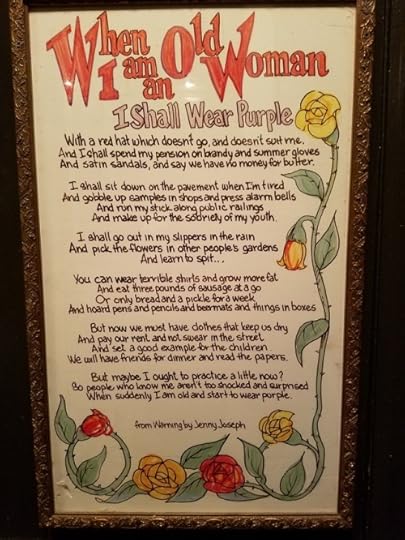 When I am an Old Woman
I Shall Wear Purple
With a red hat which doesn't go, and doesn't suit me.
And I shall spend my pension on brandy and summer gloves
And satin sandals, and say we have no money for butter.
I shall sit down on the pavement when I'm tired
And gobble up samples in shops and press alarm bells
And run my stick along public railings
And make up for the sobriety of my youth.
I shall go out in my slippers in the rain
And pick the flowers in other people's gardens
And learn to spit...
You can wear terrible shirts and grow more fat
And eat three pounds of sausage at a go
Or only bread and a pickle for a week
And hoard pens and pencils and beermats and things in boxes
But now we must have clothes that keep us dry
And pay our rent and not swear in the street
And set a good example for the children
We will have friends for dinner and read the papers.
But maybe I ought to practice a little now?
So people who know me aren't too shocked and surprised
When suddenly I am old and start to wear purple.
from Warning by Jenny Joseph